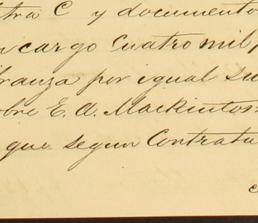 tra C y documento
cargo Cuatro mil,
ranza por igual su
bre E. A. Mackintos
que segun Contrata